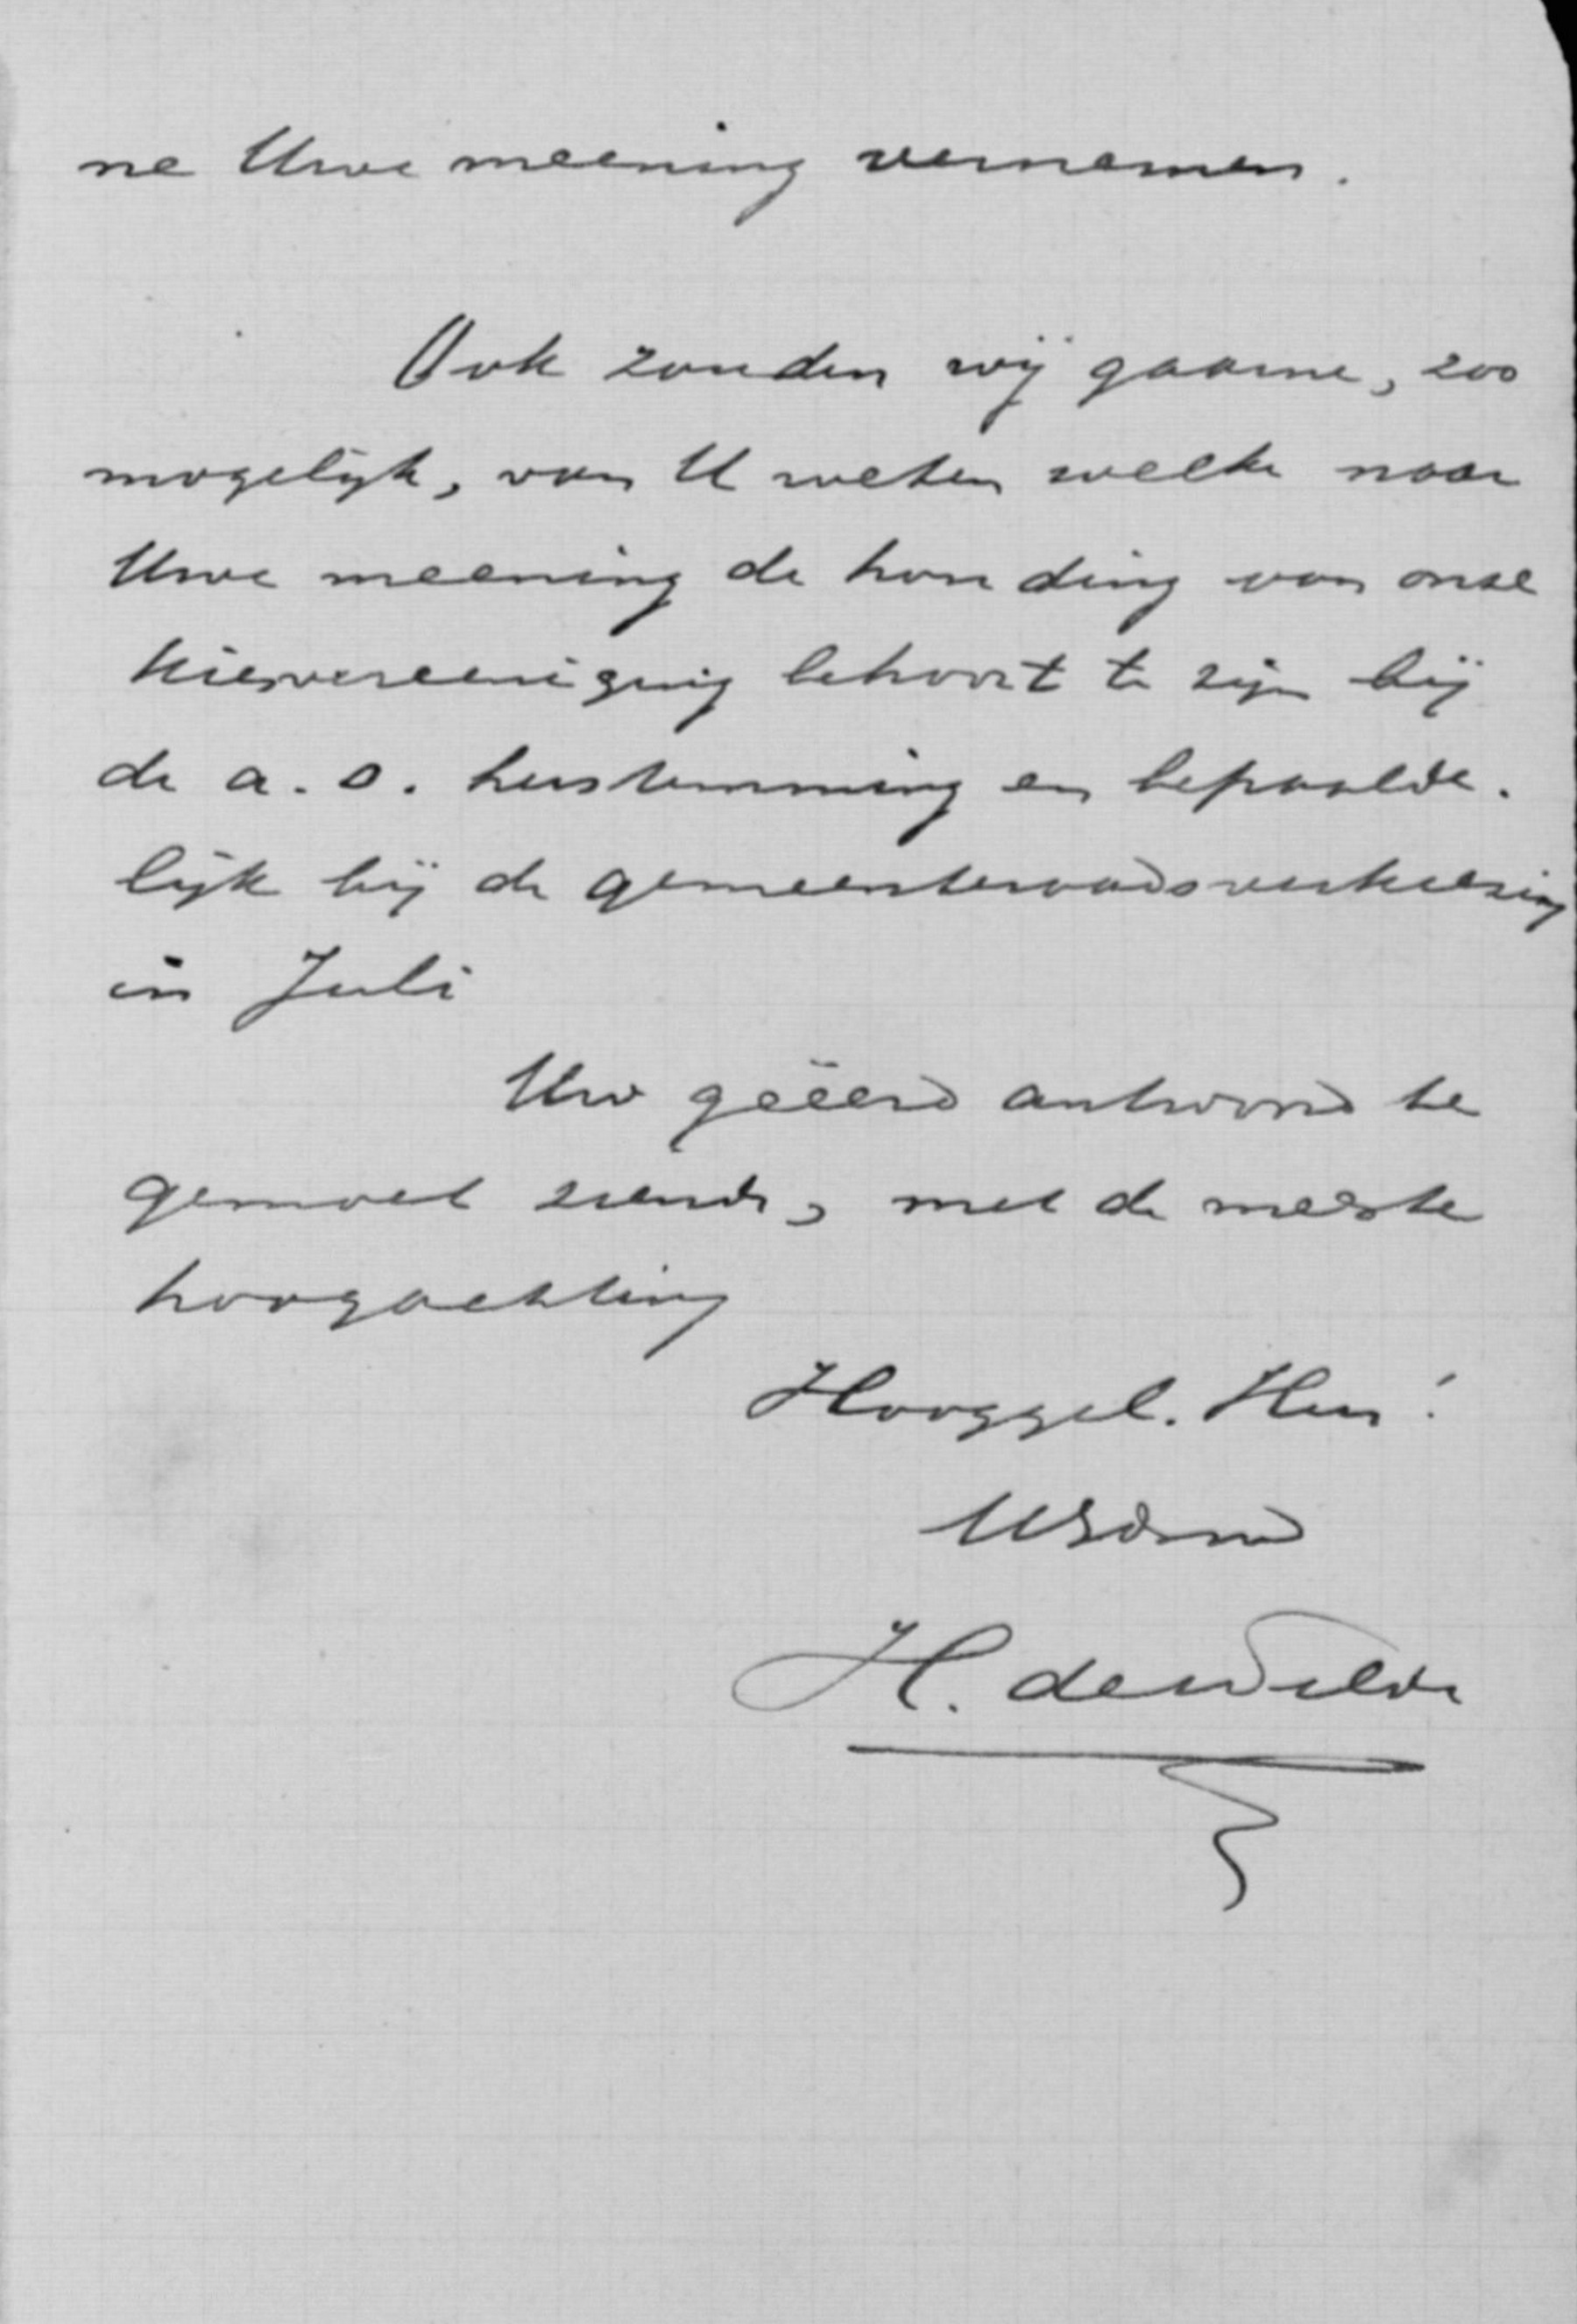 ne Uwe meening vernemen.
Ook zouden wij gaarne, zoo
mogelijk, van U weten welke naar
Uwe meening de houding van onze
kiesvereeniging behoort te zijn bij
de a.s. herstemming en bepaalde.
lijk bij de gemeenteraadsverkiezing
in Juli
Uw geëerd antwoord te
gemoet ziende, met de meeste
hoogachting
Hooggel. Heer!
UEdnw
H. de Wilde